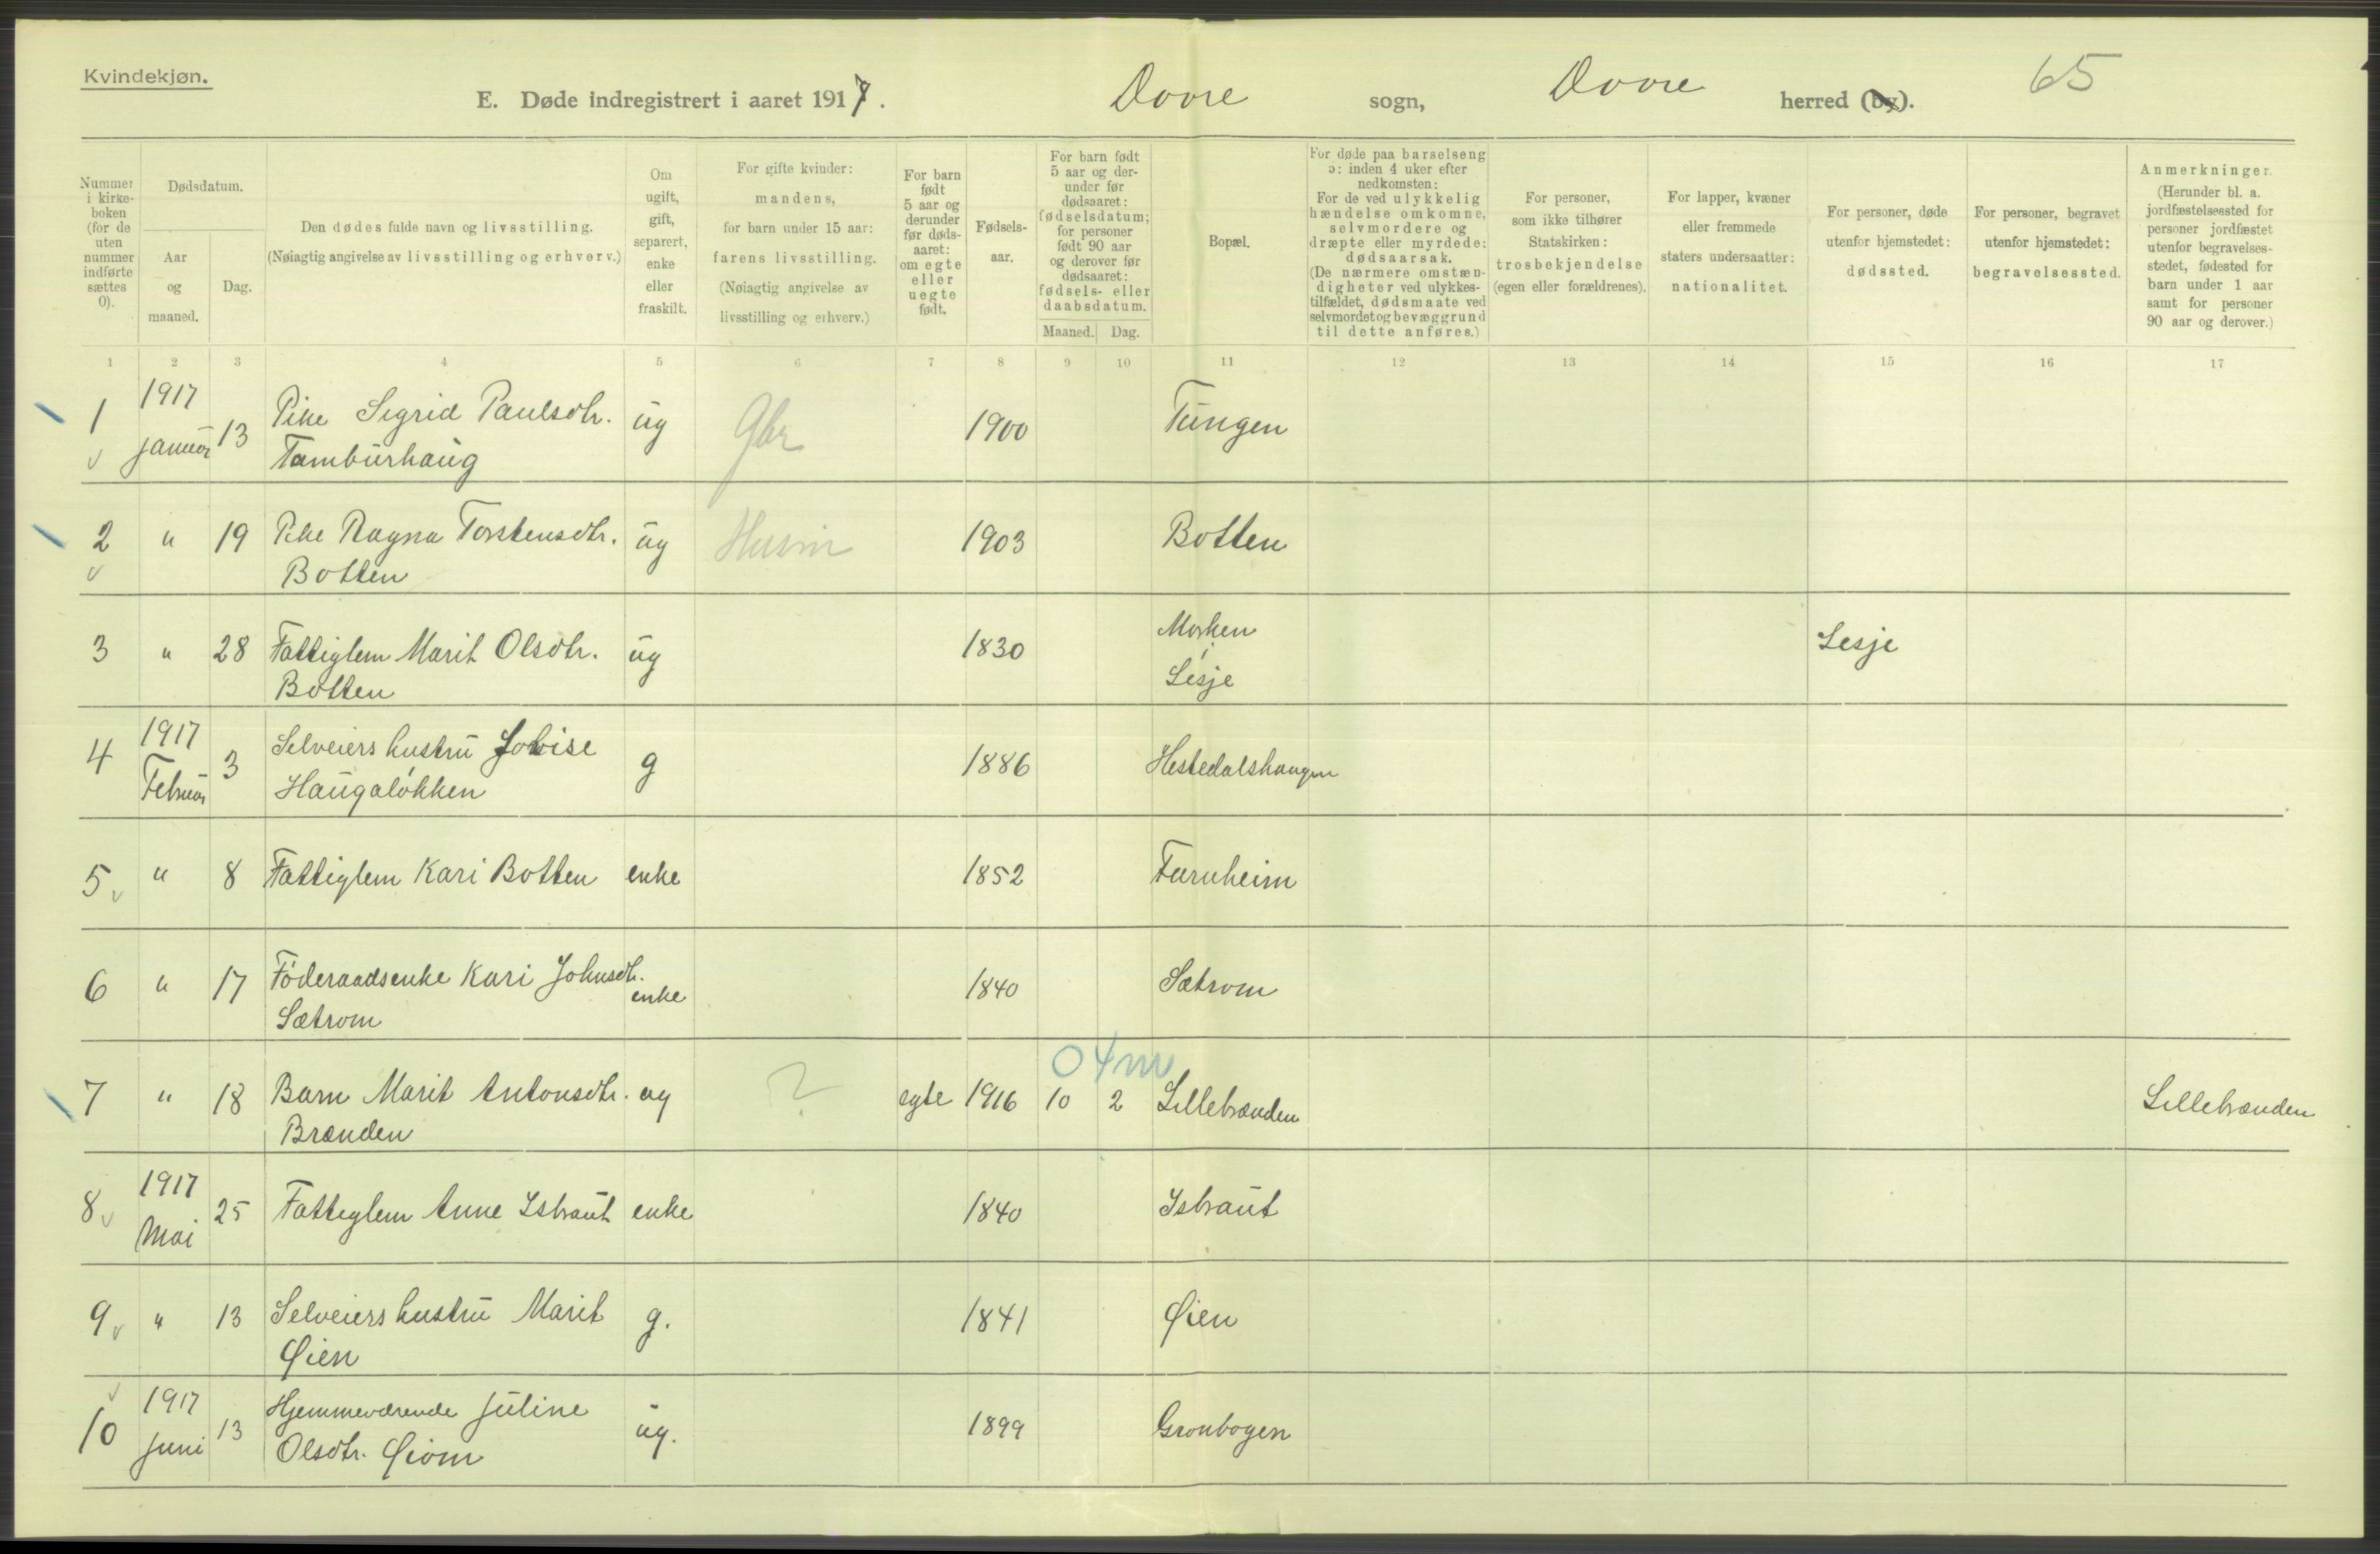 Kvindekjøn.
E. Døde indregistrert i aaret 1917. Dovre sogn, Dovre herred (by). 65
Nummer i kirkeboken (for de uten nummer indførte sættes 0).
Dødsdatum.
Aar og maaned.
Dag.
Den dødes fulde navn og livsstilling.
(Nøiagtig angivelse av livsstilling og erhverv.)
Om ugift, gift, separert, enke eller fraskilt.
For gifte kvinder: mandens, for barn under 15 aar: farens livsstilling. (Nøiagtig angivelse av livsstilling og erhverv.)
For barn født 5 aar og derunder før dødsaaret: om egte eller uegte født.
Fødselsaar.
For barn født 5 aar og derunder før dødsaaret: fødselsdatum; for personer født 90 aar og derover før dødsaaret: fødsels- eller daabsdatum.
Maaned. Dag.
Bopæl.
For døde paa barselseng ɔ: inden 4 uker efter nedkomsten: For de ved ulykkelig hændelse omkomne, selvmordere og dræpte eller myrdede: dødsaarsak. (De nærmere omstændigheter ved ulykkestilfældet, dødsmaate ved selvmordet og bevæggrund til dette anføres.)
For personer, som ikke tilhører Statskirken: trosbekjendelse (egen eller forældrenes).
For lapper, kvæner eller fremmede staters undersaatter: nationalitet.
For personer, døde utenfor hjemstedet: dødssted.
For personer, begravet utenfor hjemstedet: begravelsessted.
Anmerkninger. (Herunder bl. a. jordfæstelsessted for personer jordfæstet utenfor begravelsesstedet, fødested for barn under 1 aar samt for personer 90 aar og derover.)
1 2 3 4 5 6 7 8 9 10 11 12 13 14 15 16 17
1 1917 Januar 13 Pike Sigrid Paulsdtr. ug Gbr 1900 Tungen
Tamburhaug
2 " 19 Pike Ragna Torstensdtr. ug Husm 1903 Botten
Botten
3 " 28 Fattiglem Marit Olsdtr. ug 1830 Morken Lesje Lesje
Botten
4 1917 Februar 3 Selveiers hustru Jovise g 1886 Hestedalshaugen
Haugaløkken
5 " 8 Fattiglem Kari Botten enke 1852 Furuheim
6 " 17 Føderaadsenke Kari Johnsdtr. enke 1840 Sætrom
Sætrom
0 4m
7 " 18 Barn Marit Antonsdtr. ug ? egte 1916 10 2 Lillebrænden Lillebrænden
Brænden
8 1917 Mai 25 Fattiglem Anne Isbraut enke 1840 Isbraut
9 " 13 Selveiers hustru Marit g. 1841 Øien
Øien
10 1917 Juni 13 Hjemmeværende Juline ug. 1899 Grønbogen
Olsdtr. Øiom